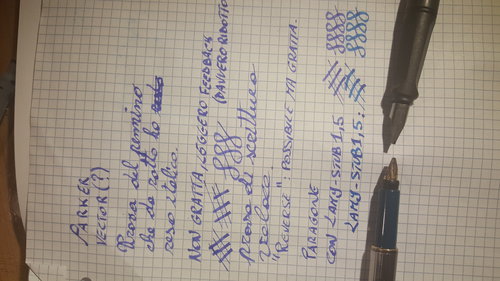 PARKER
VECTOR (?)
Prova del pennino
che da rotto ho
reso italico.
NON GRATTA, LEGGERO FEEDBACK
(DAVVERO RIDOTTO
prova di scrittura
veloce.
"REVERSE": POSSIBILE MA GRATTA.
PARAGONE
CON LAMY-STUB 1,5
LAMY-STUB 1,5: